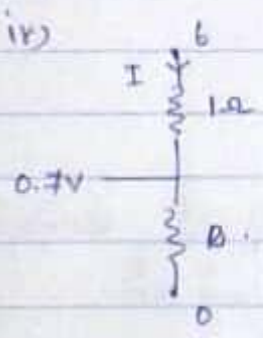 iv) 6
I
1Ω
0.7V
B.
0